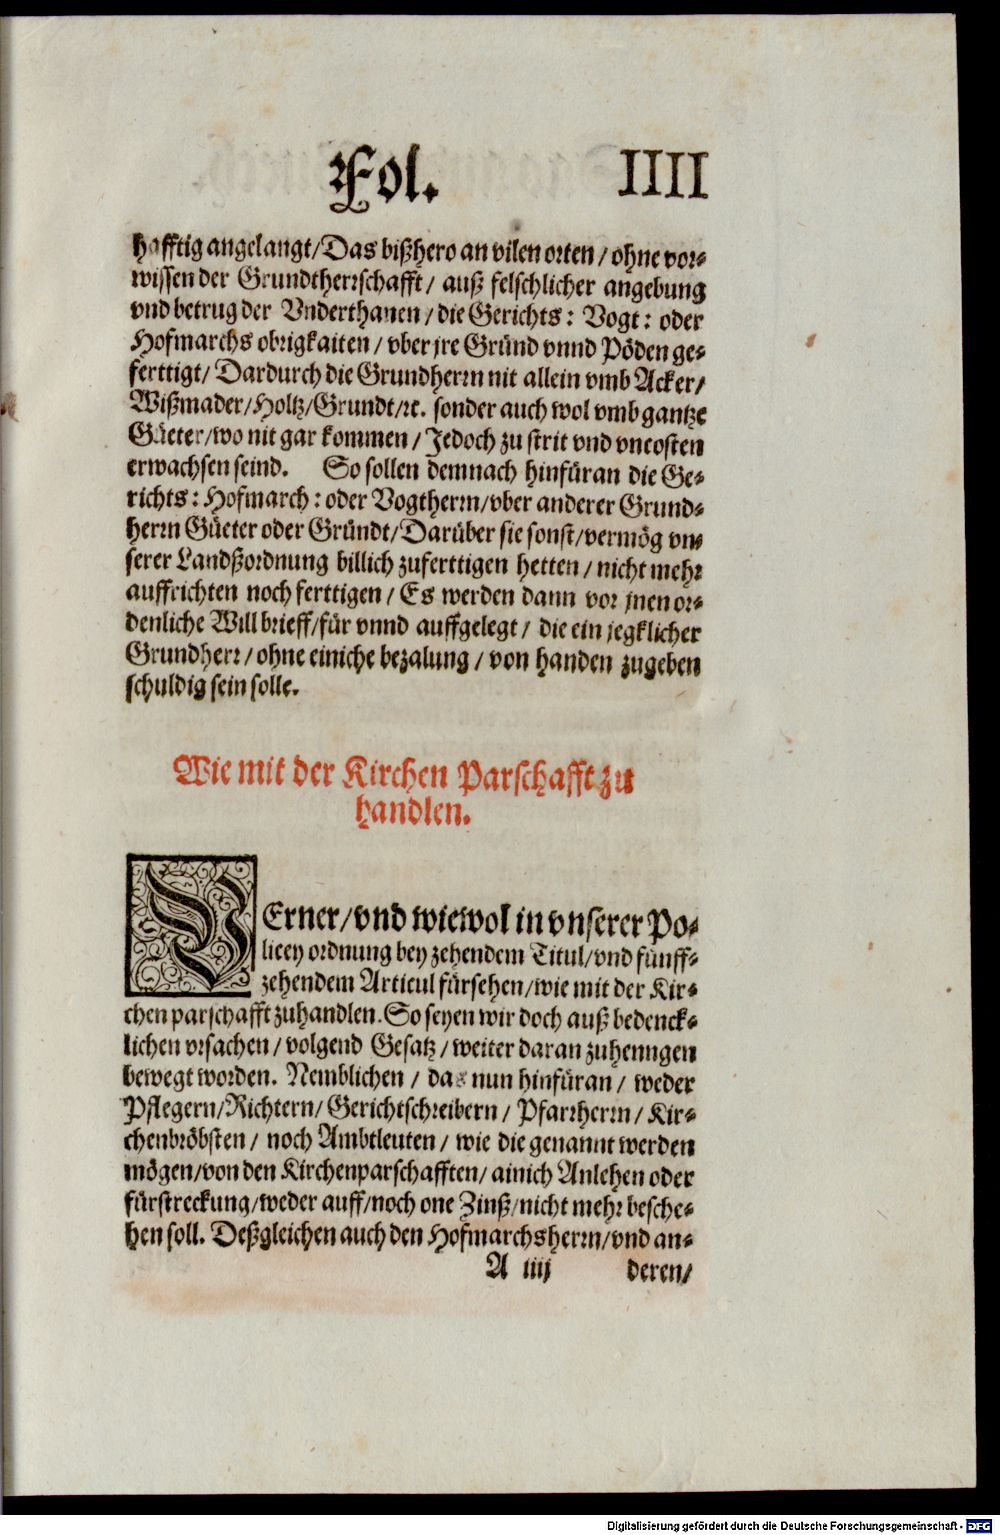 Fol. IIII
hafftig angelangt/Das bißhero an vilen orten/ohne vor⸗
wissen der Grundtherrschafft/ auß felschlicher angebung
vnd betrug der Vnderthanen/die Gerichts: Vogt: oder
Hofmarchs obrigkaiten/vber jre Gründ vnnd Pöden ge⸗
ferttigt/Dardurch die Grundherrn nit allein vmb Acker/
Wißmader/Holtz/Grundt/ꝛc. sonder auch wol vmb gantze
Güeter/wo nit gar kommen/Jedoch zu strit vnd vncosten
erwachsen seind. So sollen demnach hinfüran die Ge⸗
richts: Hofmarch: oder Vogtherrn/vber anderer Grund⸗
herrn Güeter oder Gründt/Darüber sie sonst/vermög vn⸗
serer Landßordnung billich zuferttigen hetten/nicht mehr
auffrichten noch ferttigen/Es werden dann vor jnen or⸗
denliche Willbrieff/für vnnd auffgelegt/ die ein jegklicher
Grundherr/ohne einiche bezalung/von handen zugeben
schuldig sein solle.
Wie mit der Kirchen Parschafft zu
handlen.
VErner/vnd wiewol in vnserer Po⸗
licey ordnung bey zehendem Titul/vnd fünff⸗
zehendem Articul fürsehen/wie mit der Kir⸗
chen parschafft zuhandlen. So seyen wir doch auß bedenck⸗
lichen vrsachen/volgend Gesatz/weiter daran zuhenngen
bewegt worden. Nemblichen/das nun hinfüran/ weder
Pflegern/Richtern/Gerichtschreibern/Pfarrherrn/Kir⸗
chenbröbsten/noch Ambtleuten/wie die genannt werden
mögen/von den Kirchenparschafften/ainich Anlehen oder
fürstreckung/weder auff/noch one Zinß/nicht mehr besche⸗
hen soll. Deßgleichen auch den Hofmarchsherrn/vnd an⸗
A iiij deren/
Digitalisierung gefördert durch die Deutsche Forschungsgemeinschaft - DFG